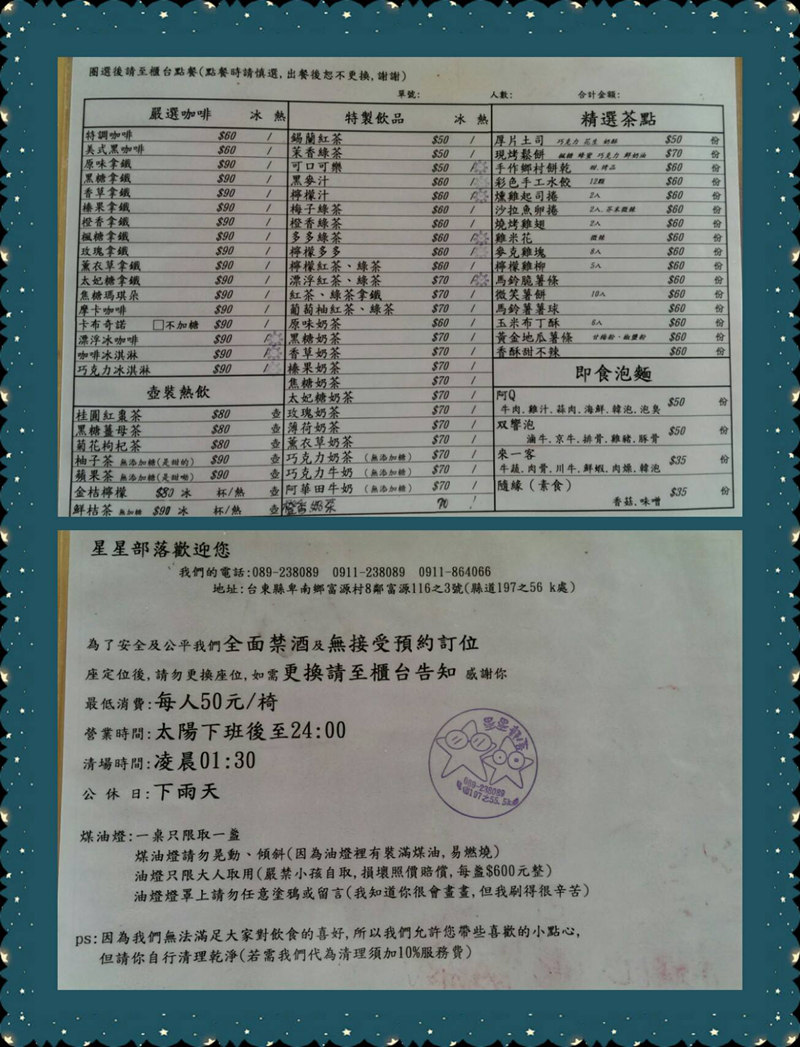 圈選後請至櫃台點餐(點餐時請慎選,出餐後恕不更換,謝謝)
單號: 人數: 合計金額:
嚴選咖啡 冰 熱
特調咖啡 $60 /
美式黑咖啡 $60 /
原味拿鐵 $90 /
黑糖拿鐵 $90 /
香草拿鐵 $90 /
榛果拿鐵 $90 /
橙香拿鐵 $90 /
楓糖拿鐵 $90 /
玫瑰拿鐵 $90 /
薰衣草拿鐵 $90 /
太妃糖拿鐵 $90 /
焦糖瑪琪朵 $90 /
摩卡咖啡 $90 /
卡布奇諾 □不加糖 $90 /
漂浮冰咖啡 $90 /
咖啡冰淇淋 $90 /
巧克力冰淇淋 $90 /
壺裝熱飲
桂圓紅棗茶 $80 壺
黑糖薑母茶 $80 壺
菊花枸杞茶 $80 壺
柚子茶 無添加糖(是甜的) $90 壺
蘋果茶 無添加糖(是甜呦) $90 壺
金桔檸檬 $80 冰 杯/熱 壺
鮮桔茶 無加糖 $90 冰 杯/熱 壺
特製飲品 冰 熱
錫蘭紅茶 $50 /
茉香綠茶 $50 /
可口可樂 $50 /
黑麥汁 $60 /
檸檬汁 $60 /
梅子綠茶 $60 /
橙香綠茶 $60 /
多多綠茶 $60 /
檸檬多多 $60 /
檸檬紅茶、綠茶 $60 /
漂浮紅茶、綠茶 $70 /
紅茶、綠茶拿鐵 $70 /
葡萄柚紅茶、綠茶 $70 /
原味奶茶 $60 /
黑糖奶茶 $70 /
香草奶茶 $70 /
榛果奶茶 $70 /
焦糖奶茶 $70 /
太妃糖奶茶 $70 /
玫瑰奶茶 $70 /
薄荷奶茶 $70 /
薰衣草奶茶 $70 /
巧克力奶茶 (無添加糖) $70 /
巧克力牛奶 (無添加糖) $70 /
阿華田牛奶 (無添加糖) $70 /
奶茶 70 /
精選茶點
厚片土司 巧克力 花生 奶酥 $50 份
現烤鬆餅 楓糖 蜂蜜 巧克力 鮮奶油 $70 份
手作鄉村餅乾 $60 份
彩色手工水餃 12顆 $60 份
燻雞起司捲 2入 $60 份
沙拉魚卵捲 2入.芥末微辣 $60 份
燒烤雞翅 2入 $60 份
雞米花 微辣 $60 份
麥克雞塊 8入 $60 份
檸檬雞柳 5入 $60 份
馬鈴脆薯條 $60 份
微笑薯餅 10入 $60 份
馬鈴薯薯球 $60 份
玉米布丁酥 6入 $60 份
黃金地瓜薯條 甘梅粉、椒鹽粉 $60 份
香酥甜不辣 $60 份
即食泡麵
阿Q $50 份
牛肉.雞汁.蒜肉.海鮮.韓泡.泡臭
双響泡 $50 份
滷牛.京牛.排骨.雞豬.豚骨
來一客 $35 份
牛蔬.肉骨.川牛.鮮蝦.肉燥.韓泡
隨緣(素食) $35 份
香菇.味噌
星星部落歡迎您
我們的電話:089-238089 0911-238089 0911-864066
地址:台東縣卑南鄉富源村8鄰富源116之3號(縣道197之56 k處)
為了安全及公平我們全面禁酒及無接受預約訂位
座定位後,請勿更換座位,如需更換請至櫃台告知 感謝你
最低消費:每人50元/椅
營業時間:太陽下班後至24:00
清場時間:凌晨01:30
公 休 日:下雨天
星星部落
089-238089
縣道197之55.5k處
煤油燈:一桌只限取一盞
煤油燈請勿晃動、傾斜(因為油燈裡有裝滿煤油,易燃燒)
油燈只限大人取用(嚴禁小孩自取,損壞照價賠償,每盞$600元整)
油燈燈罩上請勿任意塗鴉或留言(我知道你很會畫畫,但我刷得很辛苦)
ps:因為我們無法滿足大家對飲食的喜好,所以我們允許您帶些喜歡的小點心,
但請你自行清理乾淨(若需我們代為清理須加10%服務費)